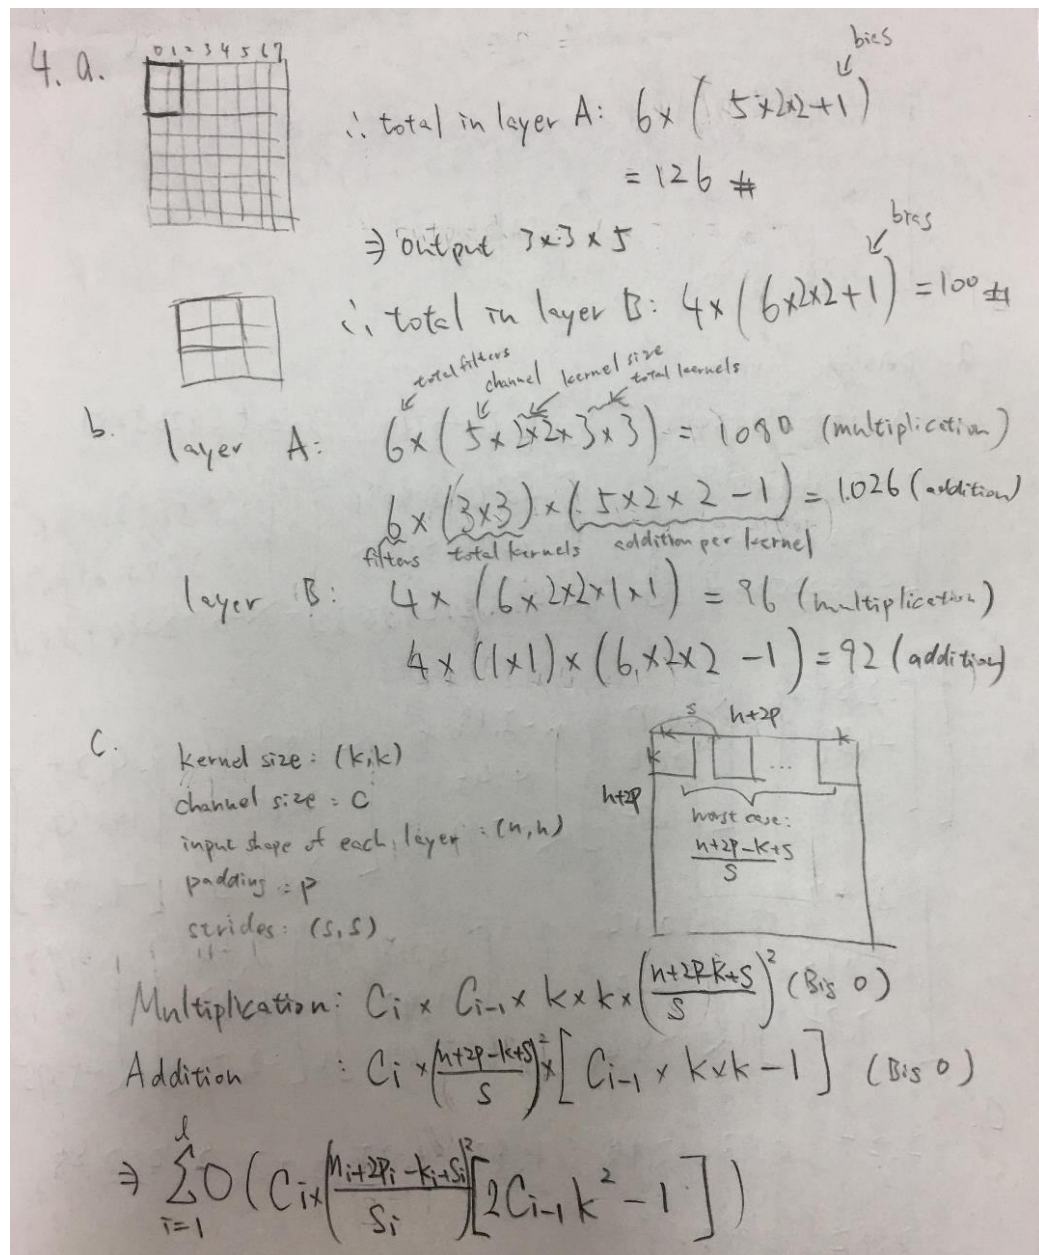 4. a.
0 1 2 3 4 5 6 7
bias
∴ total in layer A: 6 × ( 5×2×2+1 )
= 126 #
⇒ output 3×3×5
bias
∴ total in layer B: 4 × ( 6×2×2+1 ) = 100 #
total filters channel kernel size total kernels
b. layer A: 6 × ( 5 × 2×2 × 3 × 3 ) = 1080 (multiplication)
6 × (3×3) × ( 5×2×2 -1 ) = 1026 (addition)
filters total kernels addition per kernel
layer B: 4 × ( 6×2×2×1×1 ) = 96 (multiplication)
4 × (1×1) × ( 6×2×2 -1 ) = 92 (addition)
c.
kernel size : (k,k)
channel size : C
input shape of each layer : (n,n)
padding : p
strides : (s,s)
s n+2p
k k k
...
n+2p
worst case:
n+2p-k+s
s
Multiplication: Ci × Ci-1 × k × k × ( (n+2p-k+s) / s )² (Big O)
Addition : Ci × ( (n+2p-k+s) / s )² × [ Ci-1 × k×k -1 ] (Big O)
⇒ Σ_{i=1}^{l} O ( Ci × ( (ni+2pi-ki+si) / si )² [ 2Ci-1 k² -1 ] )